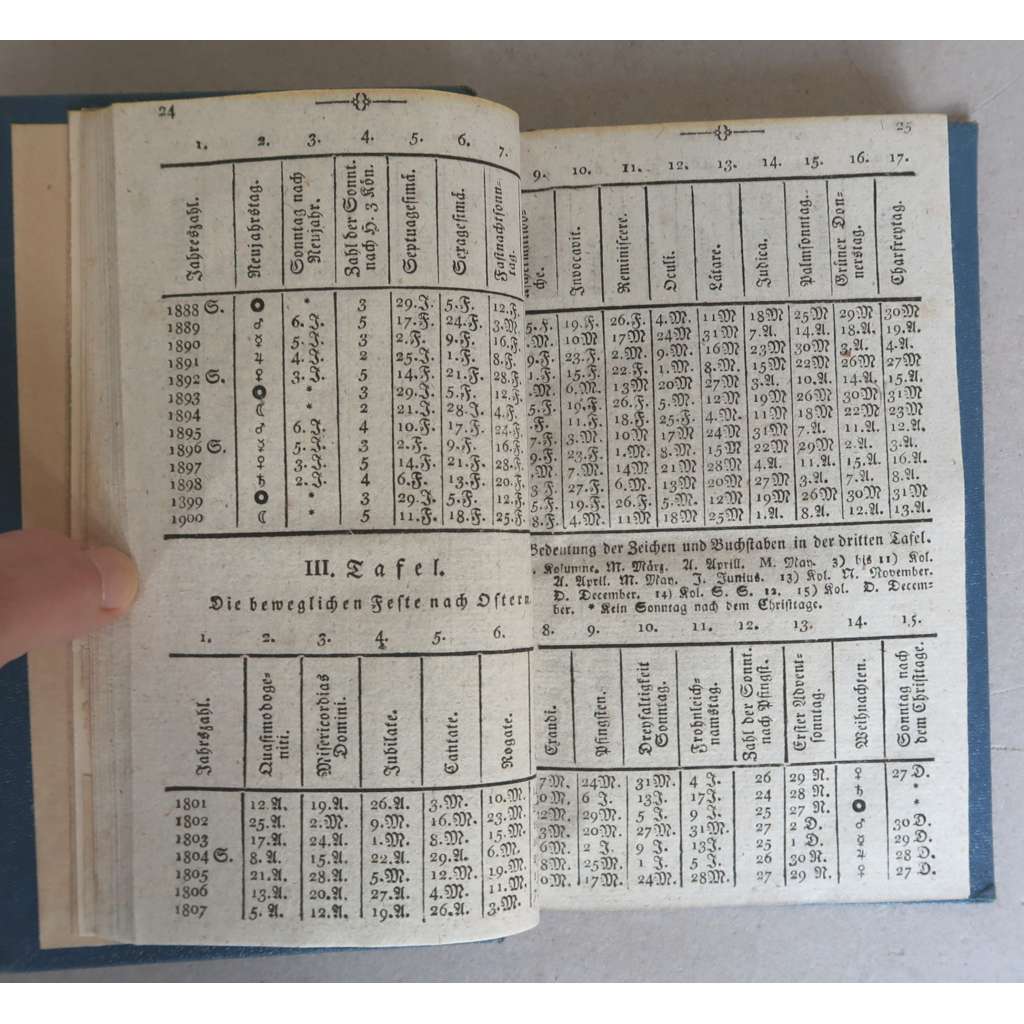 24
1. 2. 3. 4. 5. 6. 7.
Jahreszahl. Neujahrstag. Sonntag nach Neujahr. Zahl der Sonnt. nach H. 3 Kön. Septuagesimá. Sexagesimá. Fastnachtsonn-tag.
1888 S. * 3 29.J. 5.F. 12.F.
1889 ♂ 6.J. 5 17.F. 24.F. 3.M.
1890 ☿ 5.J. 3 2.F. 9.F. 16.F.
1891 ♃ 4.J. 2 25.J. 1.F. 8.F.
1892 S. ♀ 3.J. 5 14.F. 21.F. 28.F.
1893 * 3 29.J. 5.F. 12.F.
1894 ☾ * 2 21.J. 28.J. 4.F.
1895 ♂ 6.J. 4 10.F. 17.F. 24.F.
1896 S. ☿ 5.J. 3 2.F. 9.F. 16.F.
1897 ♀ 3.J. 5 14.F. 21.F. 28.F.
1898 ♄ 2.J. 4 6.F. 13.F. 20.F.
1399 * 3 29.J. 5.F. 12.F.
1900 ☾ * 5 11.F. 18.F. 25.F.
III. Tafel.
Die beweglichen Feste nach Ostern
1. 2. 3. 4. 5. 6.
Jahrszahl. Quasimodoge-niti. Misericordias Domini. Jubilate. Cantate. Rogate.
1801 12.A. 19.A. 26.A. 3.M. 10.M.
1802 25.A. 2.M. 9.M. 16.M. 23.M.
1803 17.A. 24.A. 1.M. 8.M. 15.M.
1804 S. 8.A. 15.A. 22.A. 29.A. 6.M.
1805 21.A. 28.A. 5.M. 12.M. 19.M.
1806 13.A. 20.A. 27.A. 4.M. 11.M.
1807 5.A. 12.A. 19.A. 26.A. 3.M.
25
9. 10. 11. 12. 13. 14. 15. 16. 17.
che. Invocavit. Reminiscere. Oculi. Látare. Judica. Palmsonntag. Grüner Don-nerstag. Charfreytag.
5.F. 19.F. 26.F. 4.M. 11M 18M 25M 29M 30M
.M. 10M 17M 24M 31M 7.A. 14.A. 18.A. 19.A.
9.F. 23.F. 2.M. 9.M. 16M 23M 30M 3.A. 4.A.
1.F. 15.F. 22.F. 1.M. 8.M. 15M 22M 26M 27M
.M. 6.M. 13M 20M 27M 3.A. 10.A. 14.A. 15.A.
5.F. 19.F. 26.F. 5.M. 12M 19M 26M 30M 31M
.F. 11.F. 18.F. 25.F. 4.M. 11M 18M 22M 23M
7.F. 3.M. 10M 17M 24M 31M 7.A. 11.A. 12.A.
9.F. 23.F. 1.M. 8.M. 15M 22M 29M 2.A. 3.A.
.M. 7.M. 14M 21M 28M 4.A. 11.A. 15.A. 16.A.
3 F. 27.F. 6.M. 13M 20M 27M 3.A. 7.A. 8.A.
5.F. 19.F. 26.F. 5.M. 12M 19M 26M 30M 31M
8.F. 4.M. 11M 18M 25M 1.A. 8.A. 12.A. 13.A.
Bedeutung der Zeichen und Buchstaben in der dritten Tafel.
Kolumne. M. März. A. Aprill. M. May. 3) bis 11) Kol.
A. April. M. May. J. Junius. 13) Kol. N. November.
D. December. 14) Kol. S. S. 12. 15) Kol. D. Decem-
ber. * Kein Sonntag nach dem Christtage.
8. 9. 10. 11. 12. 13. 14. 15.
Exaudi. Pfingsten. Dreyfaltigkeit Sonntag. Frohnleich-namstag. Zahl der Sonnt. nach Pfingst. Erster Advent-sonntag. Weihnachten. Sonntag nach dem Christtage.
7M. 24M. 31M. 4 J. 26 29 N. ♀ 27 D.
0M. 6 J. 13J. 17J. 24 28 N. ♄ *
2M. 29M. 5 J. 9 J. 25 27 N. *
3M. 20M. 27M. 31M. 27 2 D. ♂ 30 D.
6M. 2 J. 9 J. 13J. 25 1 D. ☿ 29 D.
8M. 25M. 1 J. 5 J. 26 30 N. ♃ 28 D.
0M. 17M. 24M. 28M. 27 29 N. ♀ 27 D.